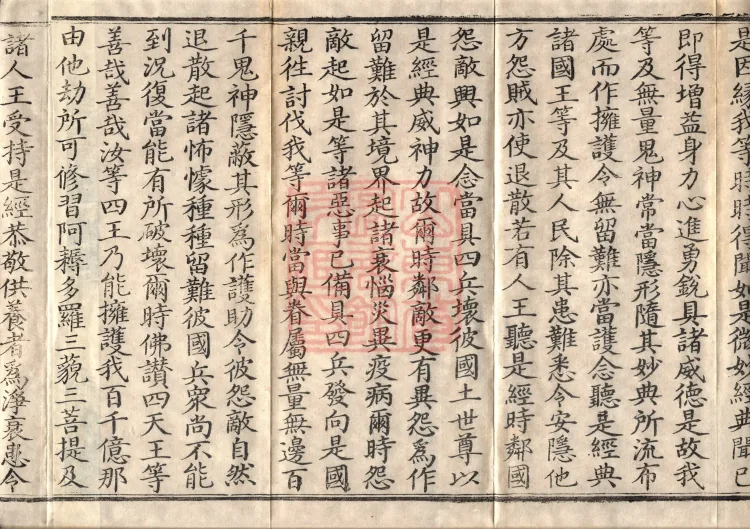 是因緣我等時時得聞如是微妙經典聞已
即得增益身力心進勇銳具諸威德是故我
等及無量鬼神常當隱形隨其妙典所流布
處而作擁護令無留難亦當護念聽是經典
諸國王等及其人民除其患難悉令安隱他
方怨賊亦使退散若有人王聽是經時鄰國
怨敵興如是念當具四兵壞彼國土世尊以
是經典威神力故爾時鄰敵更有異怨爲作
留難於其境界起諸衰惱災異疫病爾時怨
敵起如是等諸惡事已備具四兵發向是國
親往討伐我等爾時當與眷屬無量無邊百
千鬼神隱蔽其形爲作護助令彼怨敵自然
退散起諸怖懅種種留難彼國兵眾尚不能
到況復當能有所破壞爾時佛讚四天王等
善哉善哉汝等四王乃能擁護我百千億那
由他劫所可修習阿耨多羅三藐三菩提及
諸人王受持是經恭敬供養者爲淨衰患令